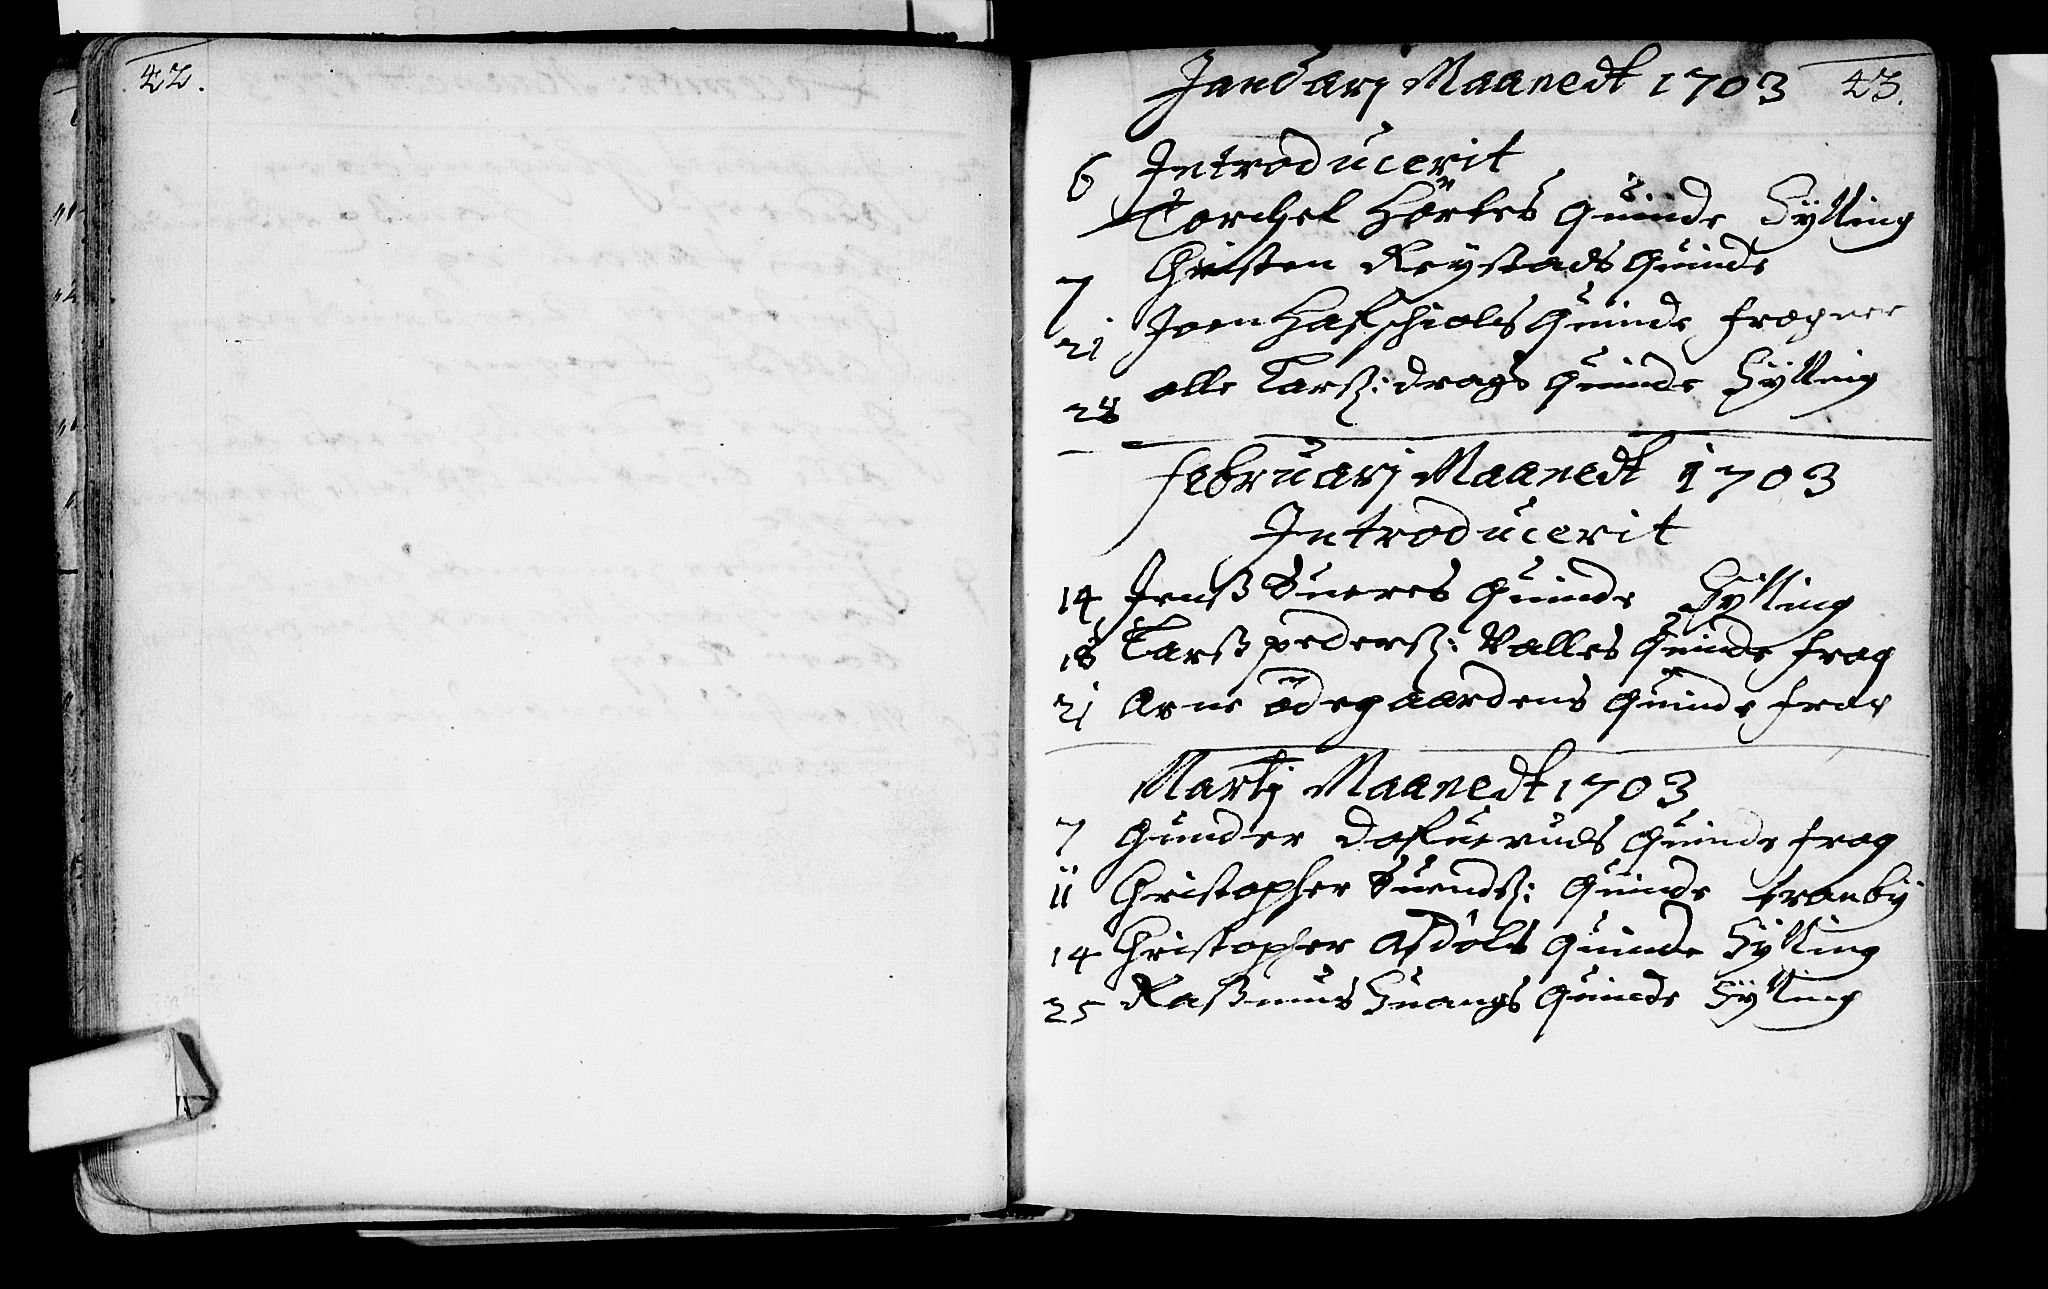 42.
Januarj Maanedt 1703 43.
Introducerit
6 Torchel Hörtes Quinde Sylling
7 Christen Reystads Quinde
21 Joen Hafschiolds Quinde Frogner
28 Olle Larsz: drags Quinde Sylling
Februarj Maanedt 1703
Introducerit
14 Jenß Sueres Quinde Sylling
18 Larß pedersz: Valles Quinde frog
21 Arne ödegaardens Quinde frog
Martij Maanedt 1703
7 Gunder Dafueruds Quinde frog
11 Christopher Suendsz: Quinde tranby
14 Christopher Asdöls Quinde Sylling
25 Raßmus Huangs Quinde Sylling